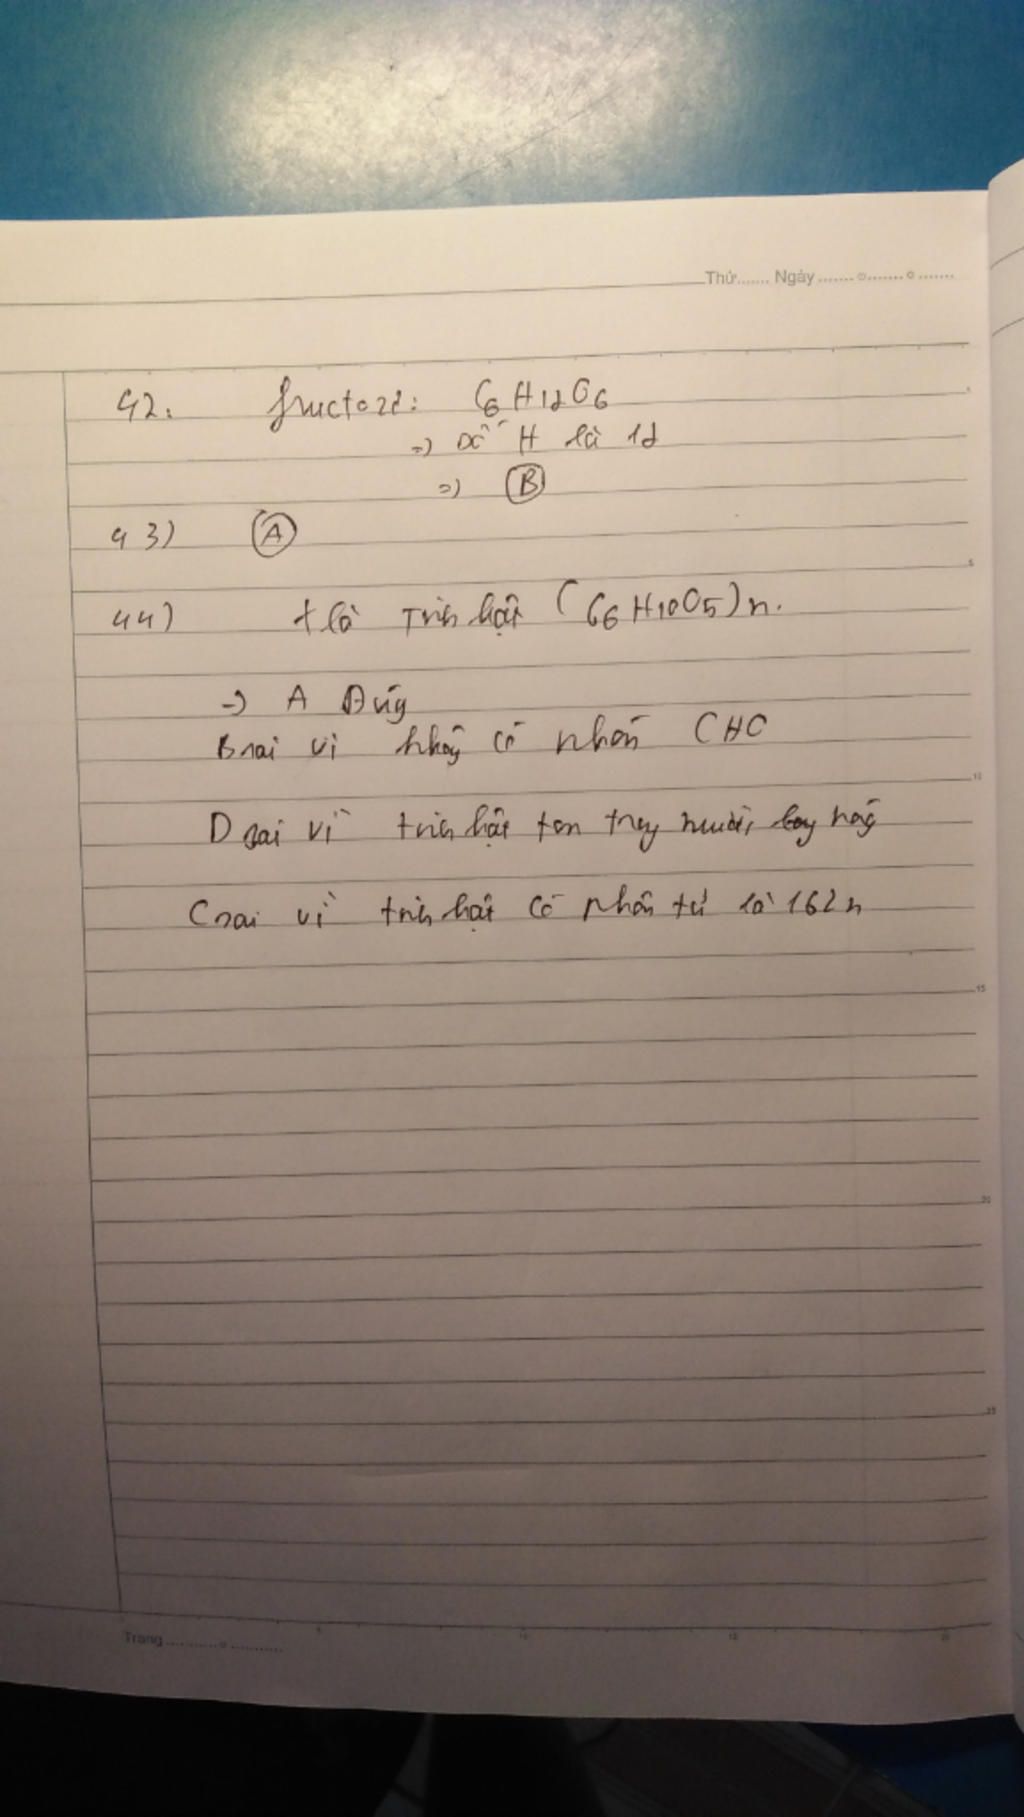 Thứ....... Ngày .......o.......o.......
42. fructozơ: C6H12O6
=) số H là 12
=) B
43) A
44) X là Tinh bột (C6H10O5)n.
-> A Đúng
B sai vì không có nhóm CHO
D sai vì tinh bột tan trong nước nóng
C sai vì tinh bột có phân tử là 162n
5
10
15
20
25
Trang...........o...........